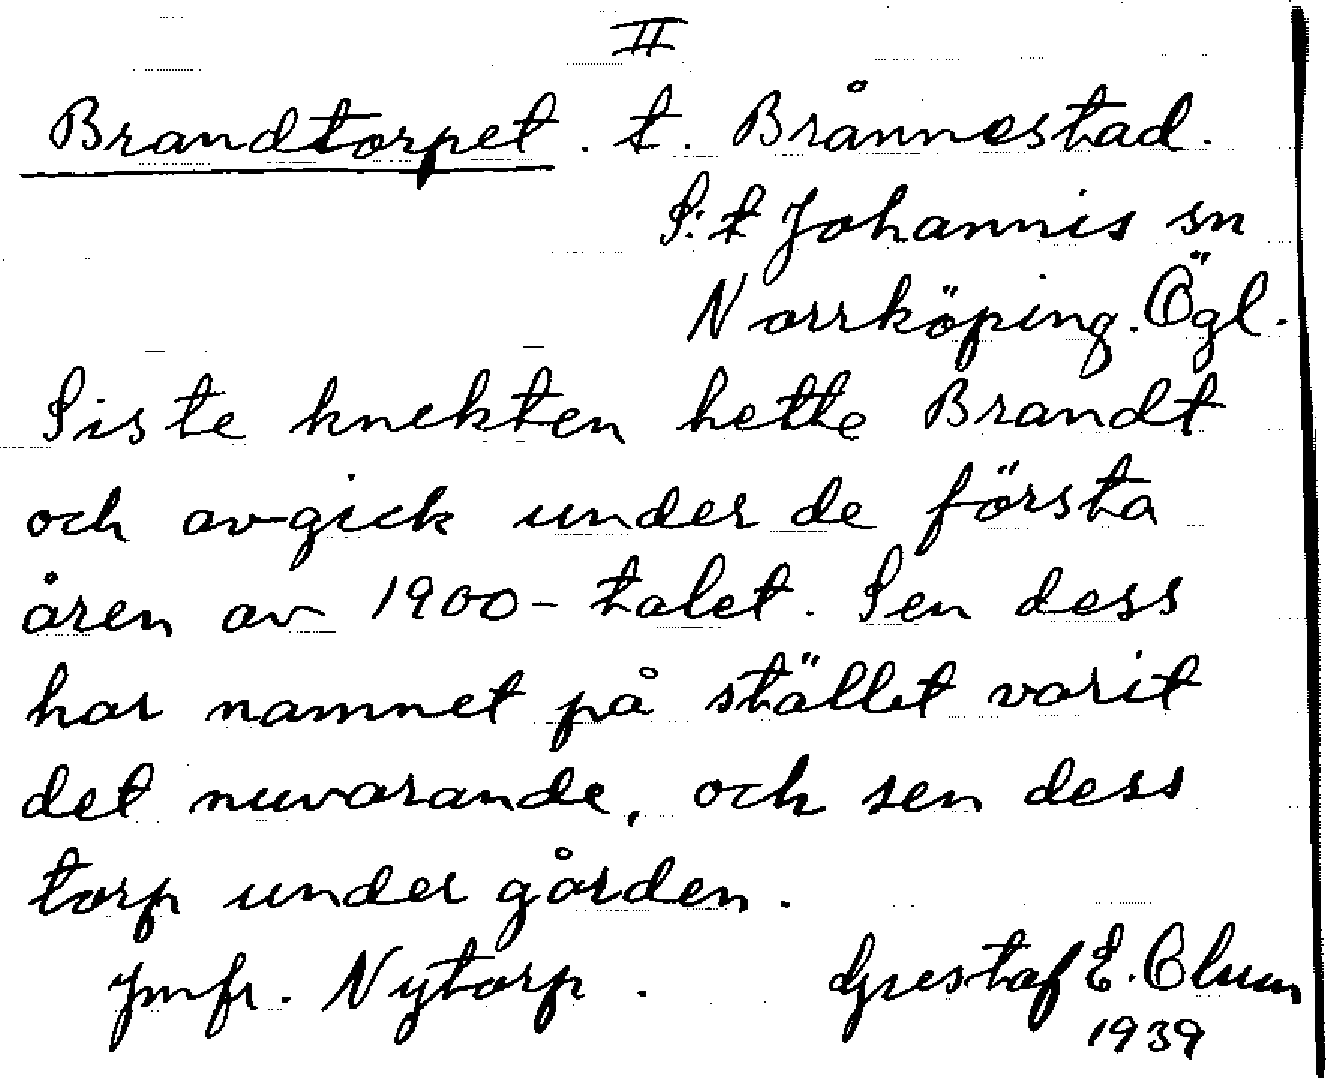 II
Brandtorpet. t. Brånnestad.
S:t Johannis sn
Norrköping. Ögl.
Siste knekten hette Brandt
och avgick under de första
åren av 1900-talet. Sen dess
har namnet på stället varit
det nuvarande, och sen dess
torp under gården.
Jmfr. Nytorp. Gustaf E.
1939